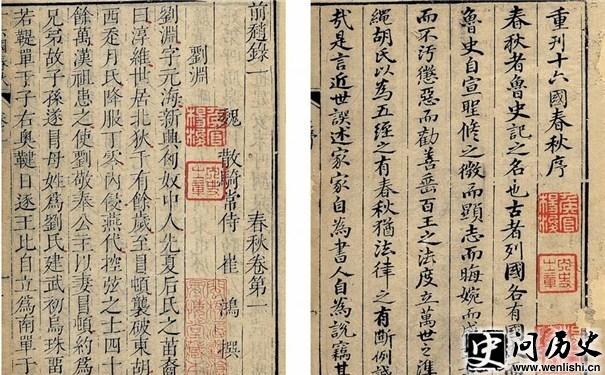 重刊十六國春秋序
春秋者魯史記之名也古者列國各有國
魯史自宣聖脩之微而顯志而晦婉而成
而不汚懲惡而勸善垂百王之法度立萬世之準
繩胡氏以為五經之有春秋猶法律之有斷例誠
哉是言近世誤述家家自為書人自為説竊其
前趙錄一 春秋卷第一
魏 散騎常侍 崔鴻 撰
劉淵
劉淵字元海新興匈奴中人先夏后氏之苗裔
曰淳維世居北狄千有餘歲至冒頓襲破東胡
西走月氏降服丁零內侵燕代控弦之士四十
餘萬漢祖患之使劉敬奉公主以妻冒頓約為
兄弟故子孫遂冒母姓為劉氏建武初烏珠留
若鞮單于子右奧鞬日逐王比自立為南單于
问历史
www.wenlishi.cn